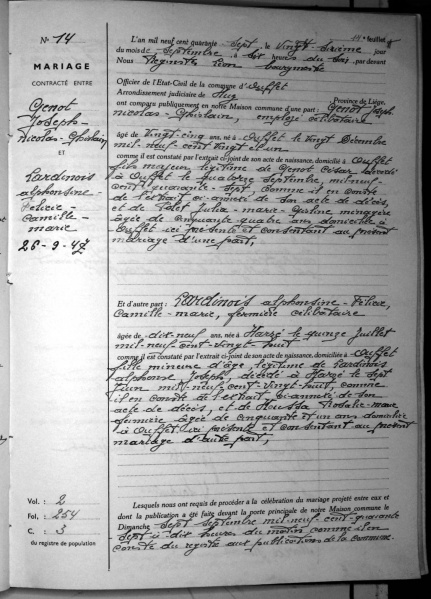 14e feuillet
No 14
MARIAGE
CONTRACTÉ ENTRE
Genot
Joseph-
Nicolas-Ghislain
ET
Lardinois
alphonsine-
Félicie-
Camille-
marie
26-9-47
L'an mil neuf cent quarante sept, le vingt-sixième jour
du mois de septembre à dix heures du , par devant
Nous Léon bourgmestre
Officier de l'Etat-Civil de la commune d'Ouffet
Arrondissement judiciaire de Huy Province de Liège.
ont comparu publiquement en notre Maison commune d'une part : Genot Joseph
nicolas-Ghislain, employé célibataire
âgé de vingt-cinq ans, né à Ouffet le vingt Décembre
mil-neuf-cent vingt et un
comme il est constaté par l'extrait ci-joint de son acte de naissance, domicilié à Ouffet
fils majeur légitime de Genot César décédé
à Ouffet le quatorze septembre mil-neuf-
cent quarante-sept, comme il en conste
de l'extrait ci-annexé de son acte de décès,
et de Julia-marie- ménagère
âgée de cinquante quatre ans domiciliée à
Ouffet ici présente et consentant au présent
mariage d'une part,
Et d'autre part : Lardinois alphonsine-Félicie,
Camille-marie, fermière célibataire
âgée de dix-neuf ans, née à Harzé le quinze Juillet
mil-neuf-cent-vingt-huit
comme il est constaté par l'extrait ci-joint de son acte de naissance, domiciliée à Ouffet
fille mineure d'âge, légitime de Lardinois
alphonse Joseph décédé à Harzé le sept
Juin mil-neuf-cent-vingt-huit, comme
il en conste de l'extrait ci-annexé de son
acte de décès, et de Houssa Rosalie-marie
fermière âgée de cinquante et un ans domiciliée
à Ouffet ici présente et consentant au présent
mariage d'autre part,
Vol. : 2
Fol. : 254
C. : 3
du registre de population
Lesquels nous ont requis de procéder à la célébration du mariage projeté entre eux et
dont la publication a été faite devant la porte principale de notre Maison commune le
Dimanche sept septembre mil-neuf-cent-quarante
sept à dix heures du matin comme il en
conste du registre aux publications de la commune.